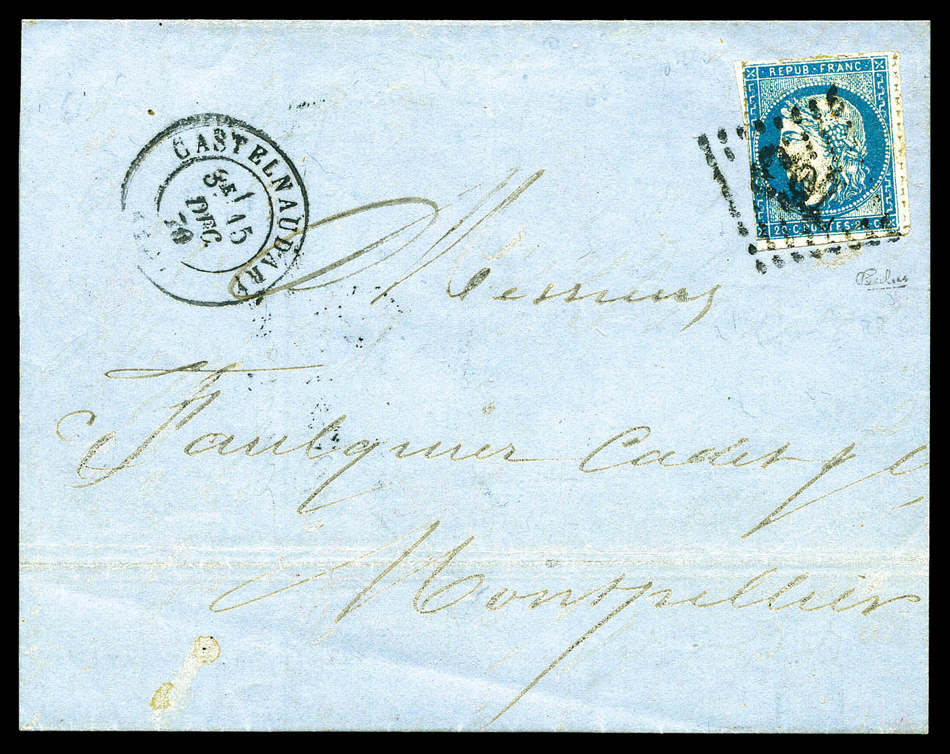 CASTELNAUDARY
3E
15
DEC.
70
REPUB·FRANC·
20·C·POSTES·20·C·
Messieurs
Faulquier Cadet & Cie
Montpellier